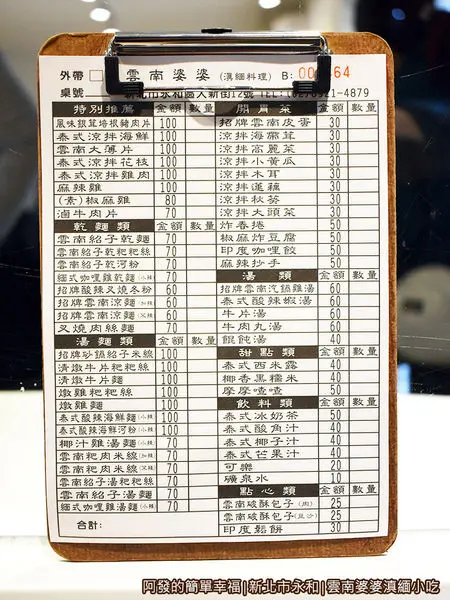 外帶 雲南婆婆 (滇緬料理) B:
桌號 新北市永和區人新街12號 TEL:(02)8921-4879
特別推薦 金額 數量
風味銀茸培根豬肉片 100
泰式涼拌海鮮 100
雲南大薄片 100
泰式涼拌花枝 100
泰式涼拌雞肉 100
麻辣雞 100
(素)椒麻雞 80
滷牛肉片 70
乾麵類 金額 數量
雲南紹子乾麵 70
雲南紹子乾粑粑絲 70
雲南紹子乾河粉 70
緬式咖哩雞乾麵(小辣) 70
招牌酸辣叉燒冬粉 60
招牌雲南涼麵(加辣) 60
招牌雲南涼麵(不辣) 60
叉燒肉絲麵 70
湯麵類 金額 數量
招牌砂鍋紹子米線 100
清燉牛片粑粑絲 100
清燉牛片麵 100
燉雞粑粑絲 100
燉雞麵 100
泰式酸辣海鮮麵(小辣) 100
泰式酸辣海鮮河粉(小辣) 100
椰汁雞湯麵(小辣) 70
雲南粑肉米線(加辣) 70
雲南粑肉米線(不辣) 70
雲南紹子湯粑粑絲 70
雲南紹子湯麵 70
緬式咖哩雞湯麵(小辣) 70
合計:
開胃菜 金額 數量
招牌雲南皮蛋 30
涼拌海帶茸 30
涼拌高麗菜 30
涼拌小黃瓜 30
涼拌木耳 30
涼拌蓮藕 30
涼拌秋葵 30
涼拌大頭菜 30
炸春捲 50
椒麻炸豆腐 50
印度咖哩餃 50
麻辣抄手 50
湯類 金額 數量
招牌雲南汽鍋雞湯 60
泰式酸辣蝦湯 60
牛片湯 60
牛肉丸湯 60
餛飩湯 40
甜點類 金額 數量
泰式西米露 40
椰香黑糯米 40
摩摩喳喳 50
飲料類 金額 數量
泰式冰奶茶 50
泰式酸角汁 40
泰式椰子汁 40
泰式芒果汁 40
可樂 20
礦泉水 10
點心類 金額 數量
雲南破酥包子(肉) 25
雲南破酥包子(豆沙) 25
印度鬆餅 30
阿發的簡單幸福|新北市永和|雲南婆婆滇緬小吃